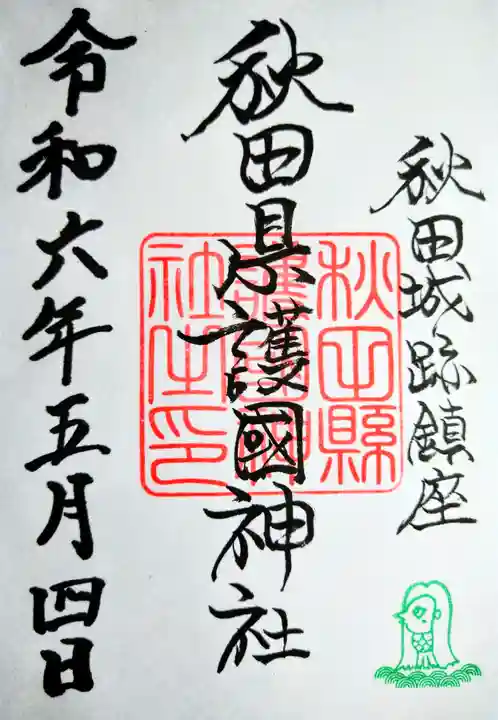 秋田城跡鎮座
秋田県護國神社
秋田縣護國神社之印
令和六年五月四日